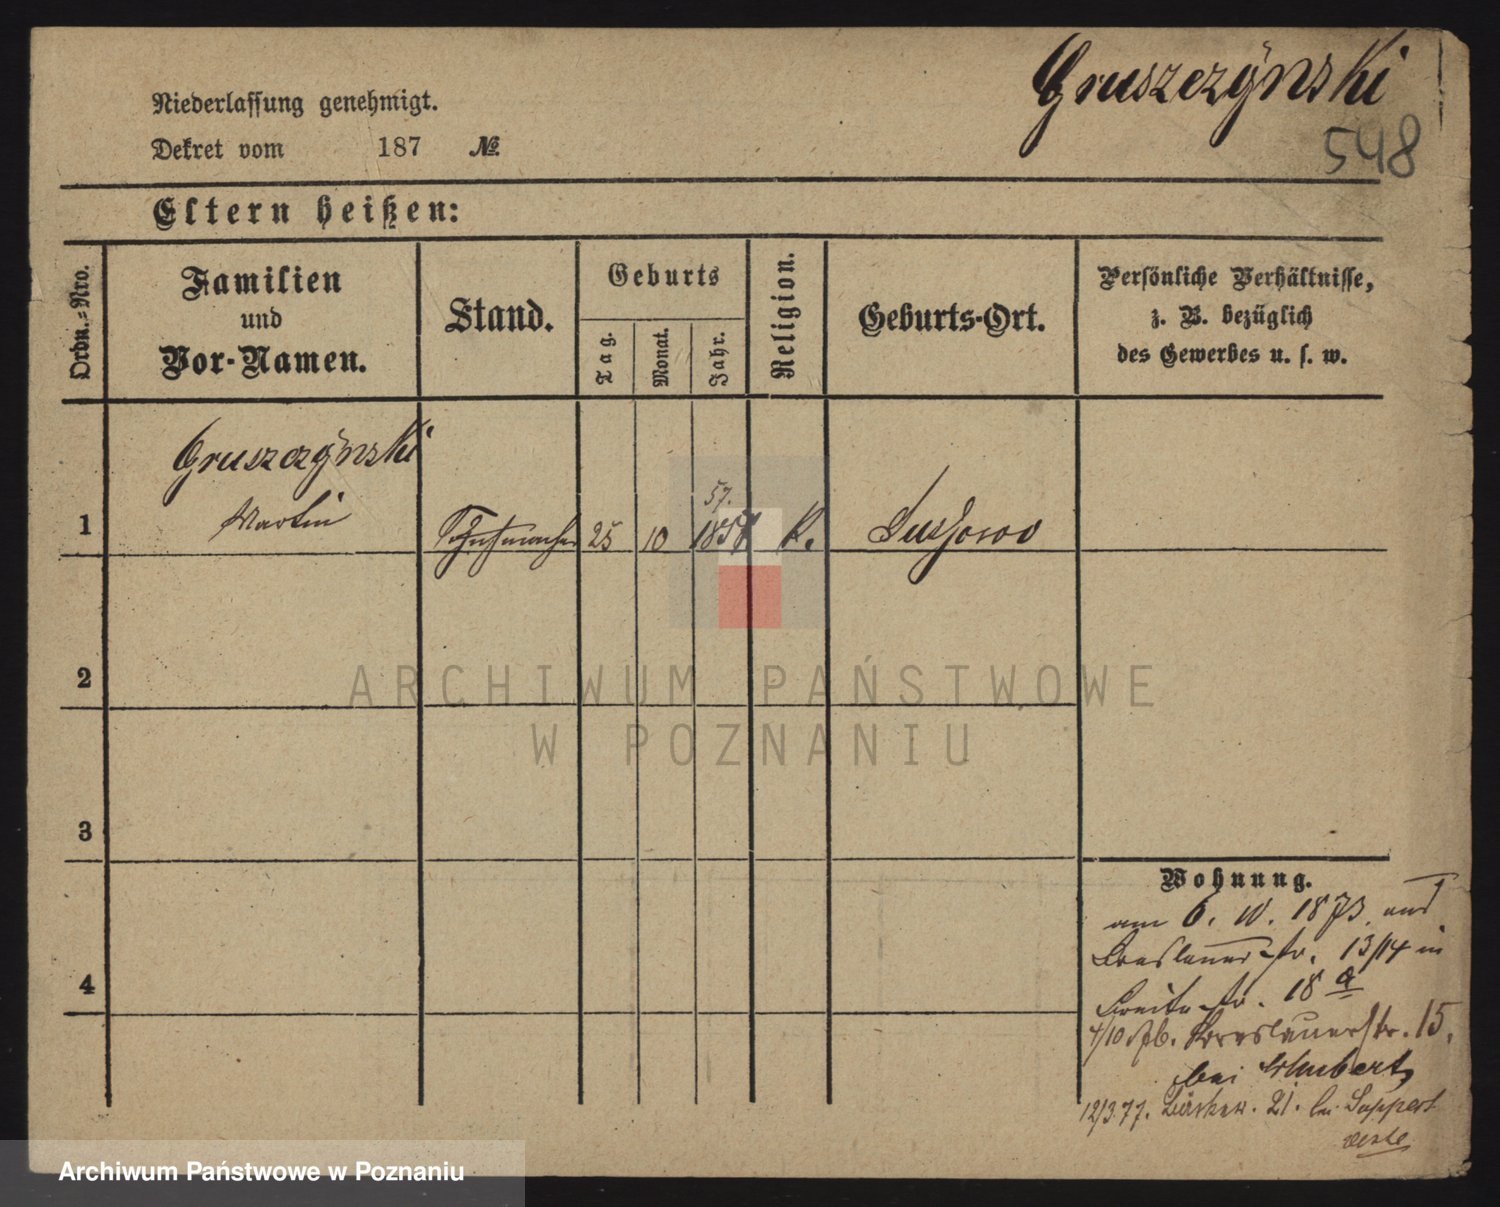 Gruszczÿnski
548
Niederlassung genehmigt.
Dekret vom 187 №.
Eltern heißen:
Ordn.-Nro.
Familien
und
Vor-Namen.
Stand.
Geburts
Tag.
Monat.
Jahr.
Religion.
Geburts-Ort.
Persönliche Verhältnisse,
z. B. bezüglich
des Gewerbes u. s. w.
Gruszczÿnski
57.
1 Martin 25 10 185 K.
2
ARCHIWUM PAŃSTWOWE
W POZNANIU
3
Wohnung.
am 6. 10. 1873. aus
Breslauerstr. 13/14 in
4
Breitestr. 18 a
4/10 Breslauerstr. 15.
bei Schubert,
12/3.77. 21. bei Suppert
Archiwum Państwowe w Poznaniu